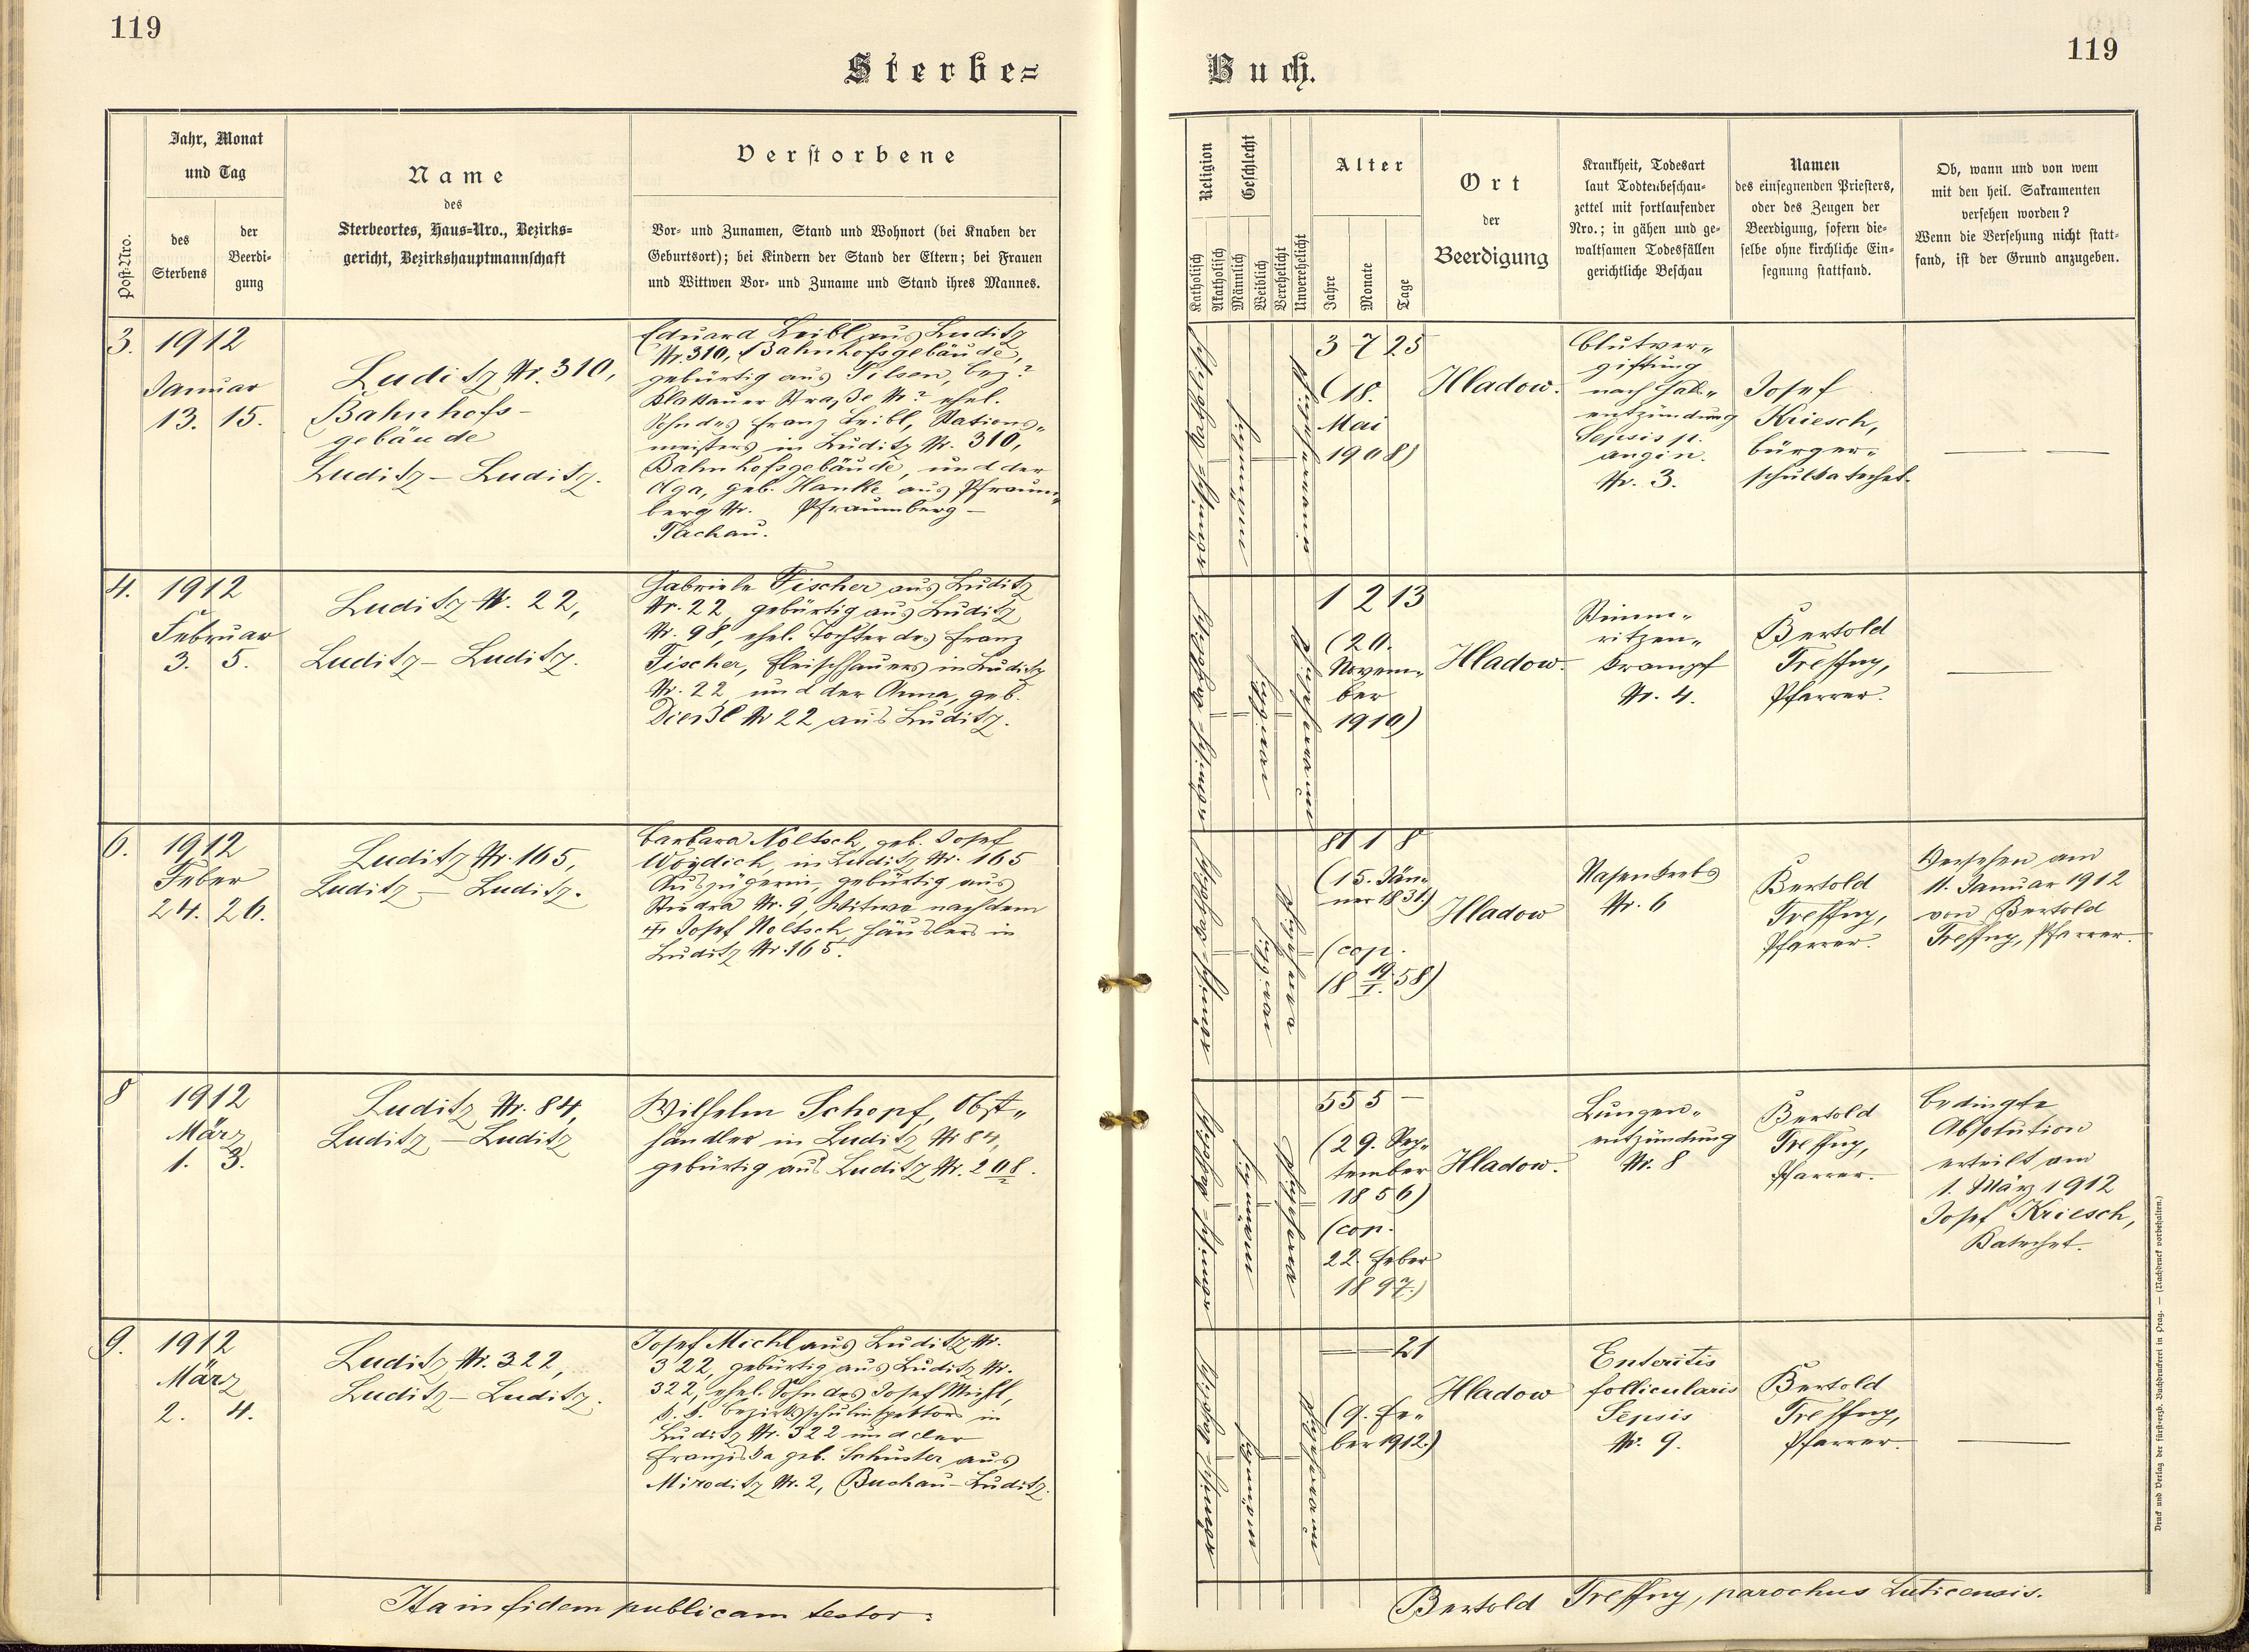 119
119
Sterbe=
Buch.
Post-Nro.
Jahr, Monat
und Tag
des
Sterbens
der
Beerdi-
gung
Name
des
Sterbeortes, Haus=Nro., Bezirks=
gericht, Bezirkshauptmannschaft
Verstorbene
Vor- und Zunamen, Stand und Wohnort (bei Knaben der
Geburtsort); bei Kindern der Stand der Eltern; bei Frauen
und Wittwen Vor- und Zuname und Stand ihres Mannes.
Religion
Katholisch
Akatholisch
Geschlecht
Männlich
Weiblich
Verehelicht
Unverehelicht
Alter
Jahre
Monate
Tage
Ort
der
Beerdigung
Krankheit, Todesart
laut Todtenbeschau-
zettel mit fortlaufender
Nro.; in gähen und ge-
waltsamen Todesfällen
gerichtliche Beschau
Namen
des einsegnenden Priesters,
oder des Zeugen der
Beerdigung, sofern die-
selbe ohne kirchliche Ein-
segnung stattfand.
Ob, wann und von wem
mit den heil. Sakramenten
versehen worden?
Wenn die Versehung nicht statt-
fand, ist der Grund anzugeben.
3.
1912
Januar
13. 15.
Luditz Nr. 310,
Bahnhofs-
gebäude
Luditz – Luditz.
Eduard Leibl aus Luditz
Nr. 310, Bahnhofsgebäude,
gebürtig aus Pilsen, bez?
Klattauer Straße Nr? ehel.
Sohn des Franz Leibl, Stations„
meisters in Luditz Nr. 310,
Bahnhofsgebäude, und der
Olga, geb. Hanke aus Pfraum„
berg Nr. Pfraumberg –
Tachau.
3 7 25
(18.
Mai
1908)
Hladow.
Blutver„
giftung
nach Hals„
entzündung
Sepsis p.
angin.
Nr. 3.
Josef
Kriesch,
Bürger„
schulkatechet.
4.
1912
Februar
3. 5.
Luditz Nr. 22,
Luditz – Luditz.
Gabriele Fischer aus Luditz
Nr. 22, gebürtig aus Luditz
Nr. 98, ehel. Tochter des Franz
Fischer, Fleischhauers in Luditz
Nr. 22 und der Anna, geb.
Dierzl Nr 22 aus Luditz.
1 2 13
(20.
Novem„
ber
1910)
Hladow.
Stimm„
ritzen„
krampf
Nr. 4.
Bertold
Treffny,
Pfarrer.
6.
1912
Feber
24. 26.
Luditz Nr. 165,
Luditz – Luditz.
Barbara Noltsch, geb. Josef
Woydich, in Luditz Nr. 165
Auszügerin, gebürtig aus
Studra Nr. 9, Witwe nach dem
Josef Noltsch, Häuslers in
Luditz Nr. 165.
81 1 8
(15. Jän„
ner 1831)
(cop.
18 19/I. 58)
Hladow
Nasenkrebs
Nr. 6
Bertold
Treffny,
Pfarrer.
Versehen am
11. Januar 1912
von Bertold
Treffny, Pfarrer.
8
1912
März
1. 3.
Luditz Nr. 84,
Luditz – Luditz
Wilhelm Schopf, Obst„
händler in Luditz Nr 84,
gebürtig aus Luditz Nr. 208.
55 5 –
(29. Sep„
tember
1856)
(cop.
22. Feber
1897.)
Hladow.
Lungen„
entzündung
Nr. 8
Bertold
Treffny,
Pfarrer.
Bedingte
Absolution
erteilt am
1. März 1912
Josef Kriesch,
Katechet.
9.
1912
März
2. 4.
Luditz Nr. 322,
Luditz – Luditz.
Josef Michl aus Luditz Nr.
322, gebürtig aus Luditz Nr.
322, ehel. Sohn des Josef Michl,
k. k. Bezirksschulinspektors in
Luditz Nr. 322 und der
Franziska geb. Schuster aus
Miroditz Nr. 2, Buchau – Luditz.
– – 21
(9. Fe„
ber 1912.)
Hladow
Enteritis
follicularis
Sepsis
Nr. 9.
Bertold
Treffny,
Pfarrer.
Ita in fidem publicam testor:
Bertold Treffny, parochus Luticensis.
Druck und Verlag der fürst-erzb. Buchdruckerei in Prag. — (Nachdruck vorbehalten.)